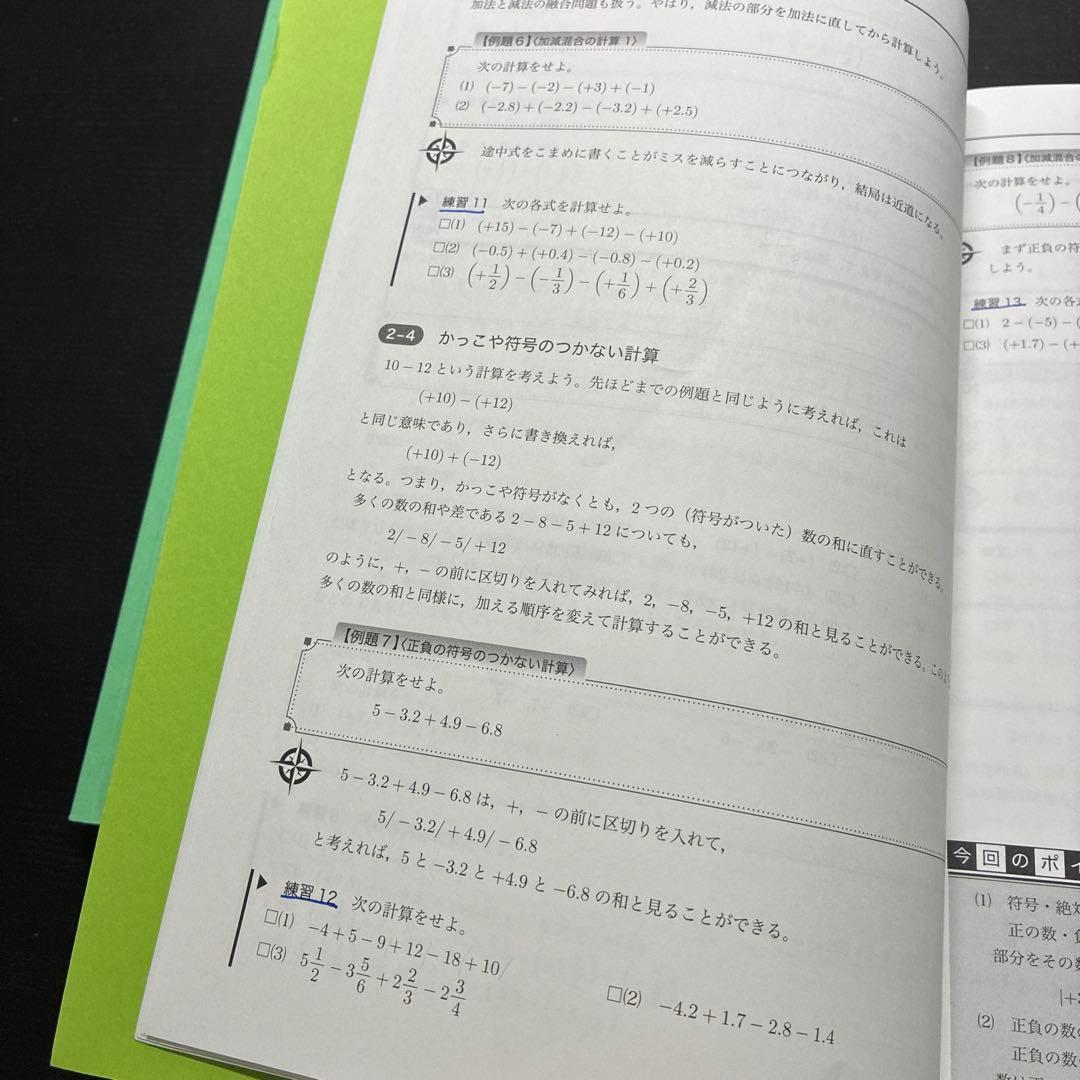 加法と減法の融合問題も扱う。やはり，減法の部分を加法に直してから計算しよう。
【例題6】〈加減混合の計算 1〉
次の計算をせよ。
(1) (−7)−(−2)−(+3)+(−1)
(2) (−2.8)+(−2.2)−(−3.2)+(+2.5)
途中式をこまめに書くことがミスを減らすことにつながり，結局は近道になる。
練習 11 次の各式を計算せよ。
□(1) (+15)−(−7)+(−12)−(+10)
□(2) (−0.5)+(+0.4)−(−0.8)−(+0.2)
□(3) (+1/2)−(−1/3)−(+1/6)+(+2/3)
2-4 かっこや符号のつかない計算
10−12 という計算を考えよう。先ほどまでの例題と同じように考えれば，これは
(+10)−(+12)
と同じ意味であり，さらに書き換えれば，
(+10)+(−12)
となる。つまり，かっこや符号がなくとも，2つの（符号がついた）数の和に直すことができる。
多くの数の和や差である 2−8−5+12 についても，
2/−8/−5/+12
のように，+，−の前に区切りを入れてみれば，2，−8，−5，+12 の和と見ることができる。このよ
多くの数の和と同様に，加える順序を変えて計算することができる。
【例題7】〈正負の符号のつかない計算〉
次の計算をせよ。
5−3.2+4.9−6.8
5−3.2+4.9−6.8 は，+，−の前に区切りを入れて，
5/−3.2/+4.9/−6.8
と考えれば，5 と −3.2 と +4.9 と −6.8 の和と見ることができる。
練習 12 次の計算をせよ。
□(1) −4+5−9+12−18+10
□(2) −4.2+1.7−2.8−1.4
□(3) 5 1/2−3 5/6+2 2/3−2 3/4
【例題8】〈加減混合の
次の計算をせよ。
(−1/4)−(
まず正負の符
しよう。
練習 13 次の各式
□(1) 2−(−5)−(
□(3) (+1.7)−(+
今回のポイ
(1) 符号・絶対
正の数・負
部分をその数
|+3
(2) 正負の数の
正負の数